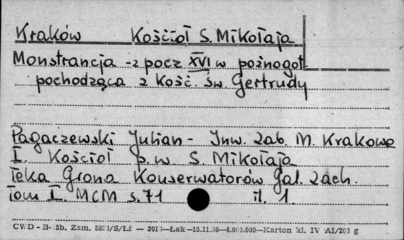 Kraków Kościół S. Mikołaja
Monstrancja - z pocz XVI w późnogot.
pochodząca z Kość. św Gertrudy
Pagaczewski Julian - Inw. Zab. M. Krakowa
I. Kościół p.w S. Mikołaja
Teka Grona Konserwatorów Gal. Zach.
Tom I. MCM s. 71 il. 1
CWD - B- 5b, Zam. Łsk—15.11.56—4.000.000—Karton kl. IV